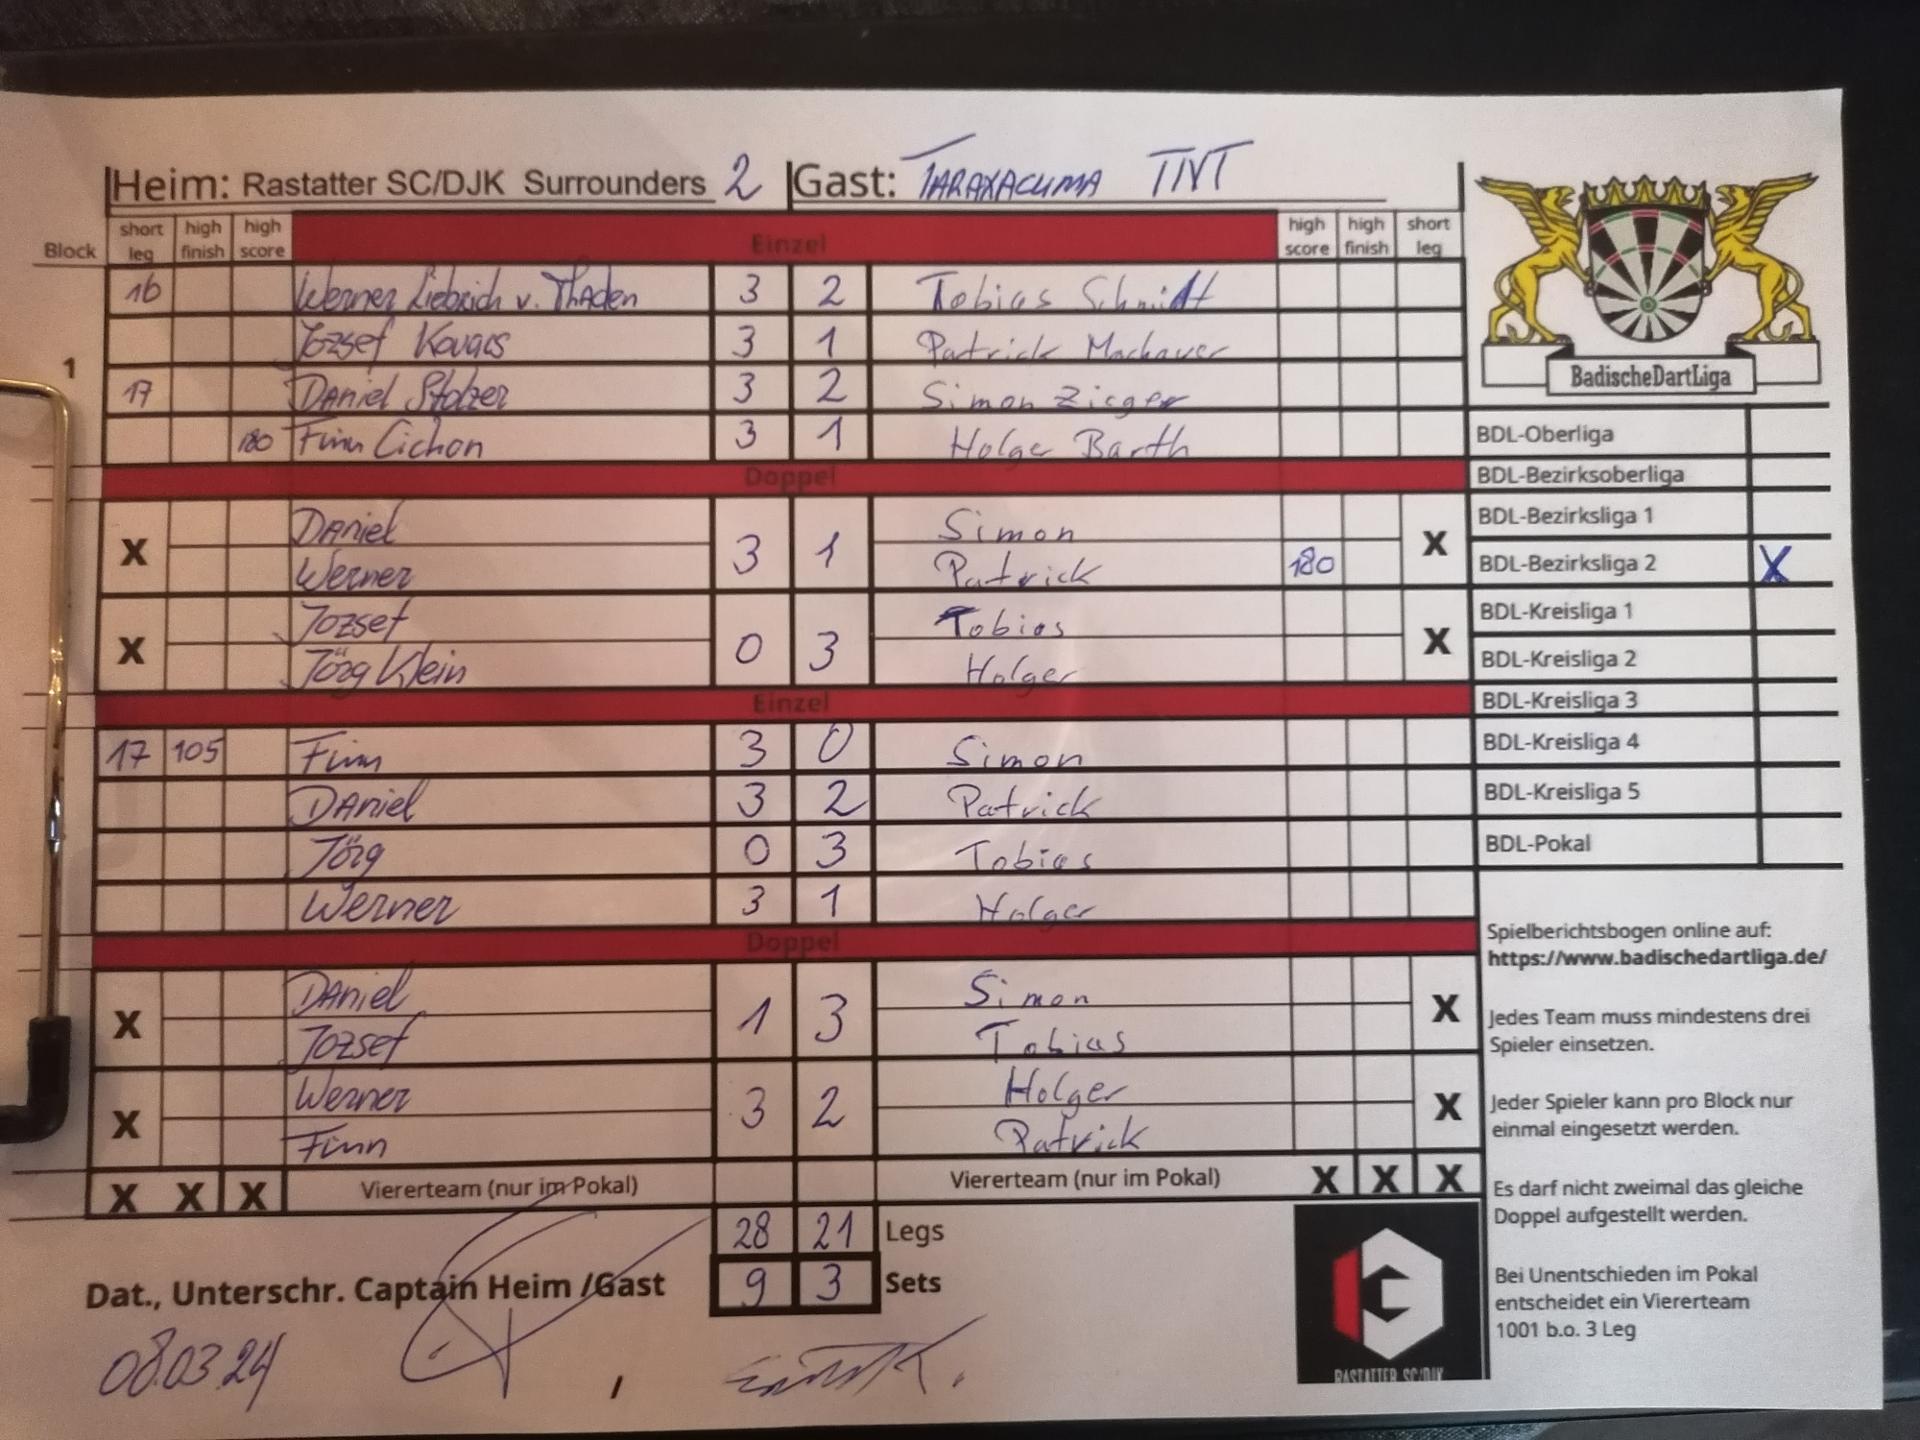 Heim: Rastatter SC/DJK Surrounders 2 Gast: TARAXACUMA TNT
Block short leg high finish high score Einzel high score high finish short leg
16 Werner Liebrich v. Thaden 3 2 Tobias Schmidt
Jozsef Kovacs 3 1 Patrick Machauer
1
17 Daniel Stolzer 3 2 Simon Zieger
180 Finn Cichon 3 1 Holger Barth
Doppel
X Daniel 3 1 Simon X
Werner Patrick 180
X Jozsef 0 3 Tobias X
Jörg Klein Holger
Einzel
17 105 Finn 3 0 Simon
Daniel 3 2 Patrick
Jörg 0 3 Tobias
Werner 3 1 Holger
Doppel
X Daniel 1 3 Simon X
Jozsef Tobias
X Werner 3 2 Holger X
Finn Patrick
X X X Viererteam (nur im Pokal) Viererteam (nur im Pokal) X X X
28 21 Legs
9 3 Sets
Dat., Unterschr. Captain Heim /Gast
08.03.24 /
BadischeDartLiga
BDL-Oberliga
BDL-Bezirksoberliga
BDL-Bezirksliga 1
BDL-Bezirksliga 2 X
BDL-Kreisliga 1
BDL-Kreisliga 2
BDL-Kreisliga 3
BDL-Kreisliga 4
BDL-Kreisliga 5
BDL-Pokal
Spielberichtsbogen online auf:
https://www.badischedartliga.de/
Jedes Team muss mindestens drei
Spieler einsetzen.
Jeder Spieler kann pro Block nur
einmal eingesetzt werden.
Es darf nicht zweimal das gleiche
Doppel aufgestellt werden.
Bei Unentschieden im Pokal
entscheidet ein Viererteam
1001 b.o. 3 Leg
RASTATTER SC/DJK